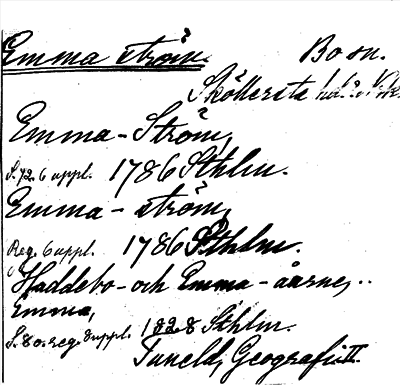 Emma ström. Bo sn.
Sköllersta hd.
Emma-Ström,
S. 72. 6 uppl. 1786 Sthlm.
Emma-ström,
Reg. 6 uppl. 1786 Sthlm.
Haddebo- och Emma-åarne,..
Emma,
S. 80. reg. 8 uppl. 1828 Sthlm.
Tuneld, Geografi II.